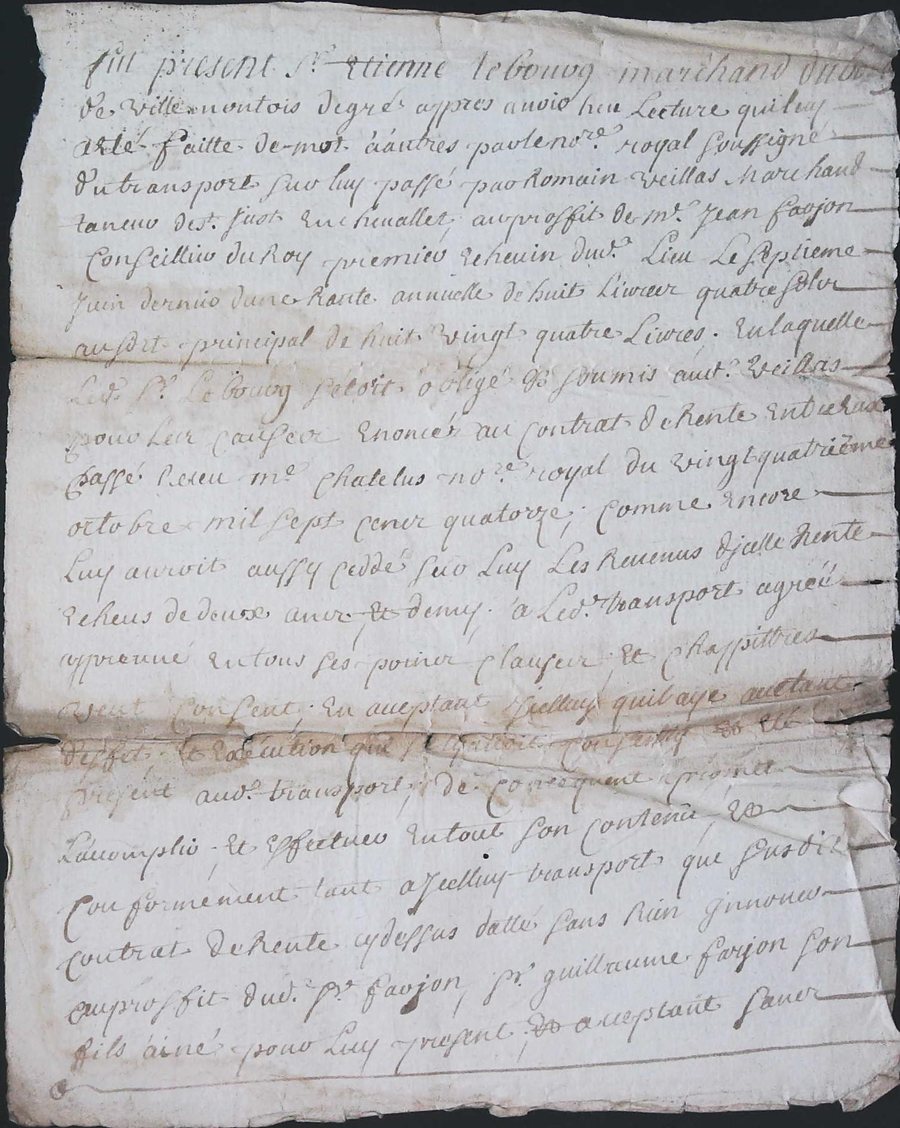 fut present Sr. Etienne lebourg marchand du
de villemontois degré appres avoir heu Lecture quiluy
a eté faitte de mot à autres parle nore. royal soussigné
du transport sur luy passé par Romain veillas Marchand
taneur de St. Just en chevallet, au proffit de me. Jean farjon
Conseillier du Roy premier echevin dud. Lieu Le septieme
Juin dernier dune Rante annuelle de huit Livres quatre solz
au sort principal de huit vingt quatre Livres. En laquelle
Led. Sr. Lebourg setoit obligé & soumis aud. veillas
pour Les causes enoncés au contrat de Rente entre eux
passé Receu me. Chatelus nore. royal du vingt quatrième
octobre mil sept cens quatorze, comme encore
Luy auroit aussy ceddé sur Luy Les Revenus d'jcelle Rente
echeus de deux ans et demy, a Led. transport agréé
approuvé en tous ses poins clauses et chappittres
veut consent, en aceptant jcelluy quil aye autant
deffet et execution que consenty et eté
present aud. transport, de consequent promet
L'acomplir et effectuer en tout son contenu, &
conformement tant a Jcelluy transport que susdit
contrat de Rente cydessus datté sans rien jnnover
au proffit dud. Sr. farjon, Sr. guillaume farjon son
fils ainé pour Luy present, & aceptant sans